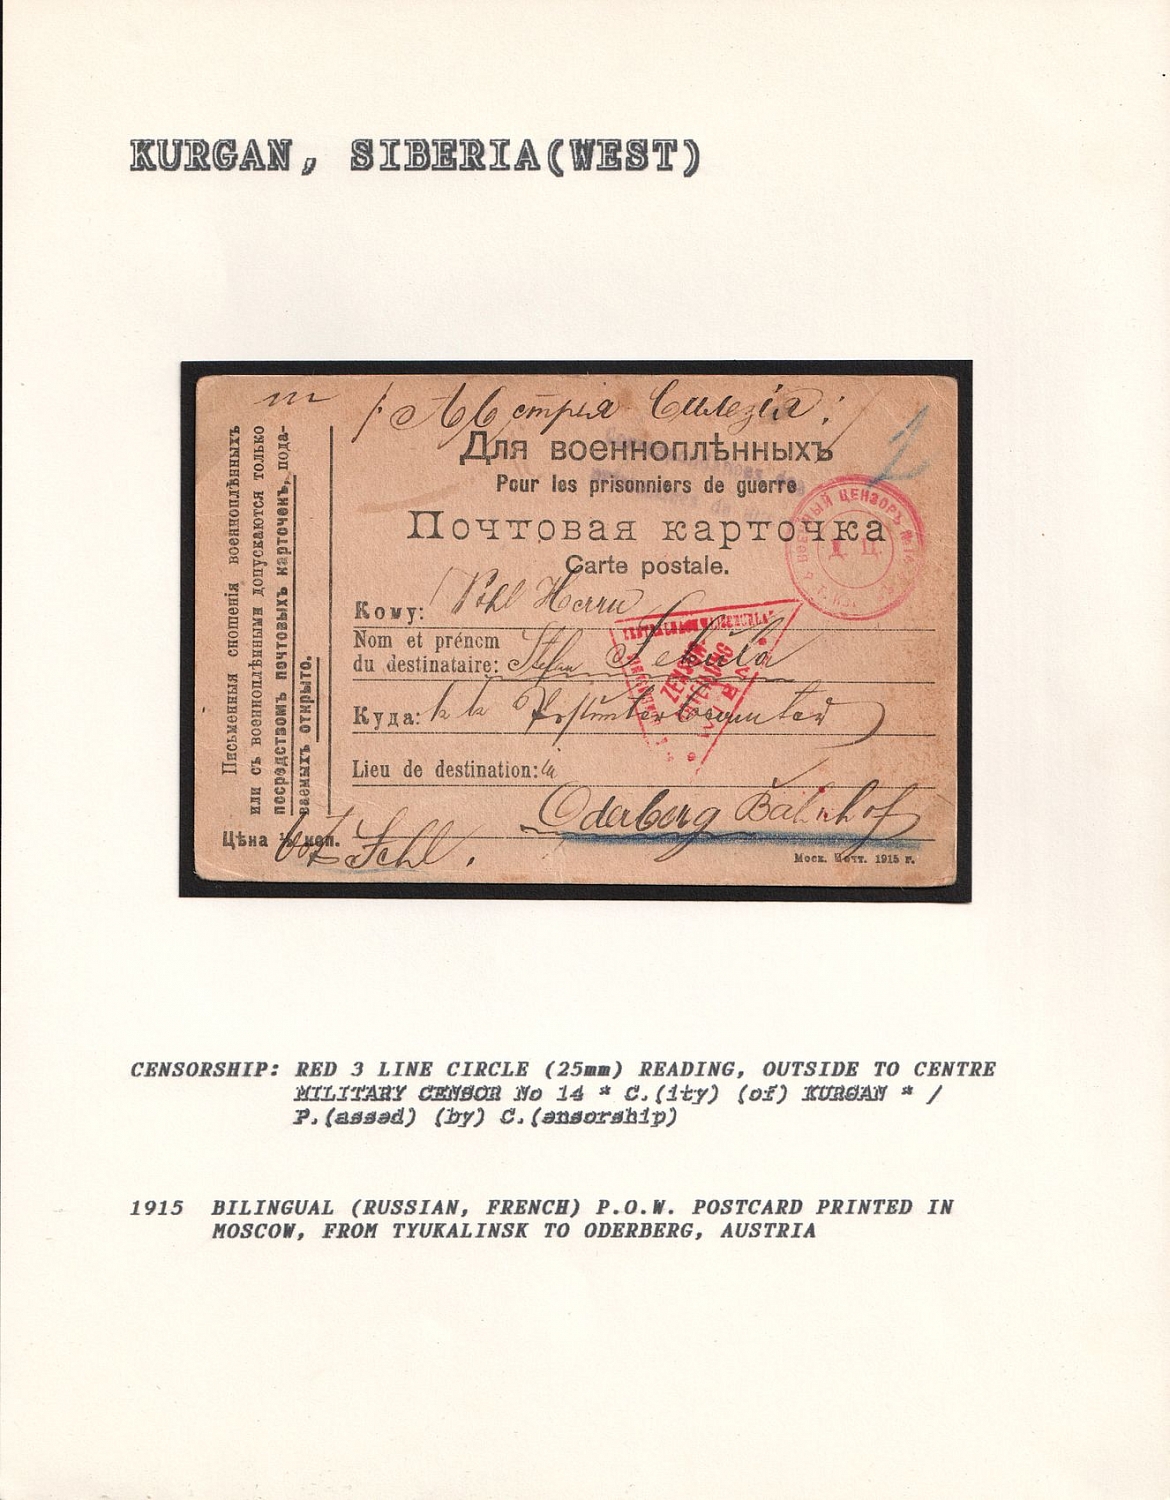 KURGAN, SIBERIA(WEST)
Австрія Силезія:
Для военноплѣнныхъ
Pour les prisonniers de guerre
Почтовая карточка
Carte postale.
ВОЕННЫЙ ЦЕНЗОРЪ № 14
Кому: Herrn
Nom et prénom
du destinataire: Stefan Sekula
ZENSUR
ABTEILUNG
Куда: k. k.
Lieu de destination: in
Oderberg Bahnhof
Öst. Schl.
Моск. Почт. 1915 г.
Письменныя сношенія военноплѣнныхъ
или съ военноплѣнными допускаются только
посредствомъ почтовыхъ карточекъ, пода-
ваемыхъ открыто.
Цѣна ½ коп.
CENSORSHIP: RED 3 LINE CIRCLE (25mm) READING, OUTSIDE TO CENTRE
MILITARY CENSOR No 14 * C.(ity) (of) KURGAN * /
P.(assed) (by) C.(ensorship)
1915 BILINGUAL (RUSSIAN, FRENCH) P.O.W. POSTCARD PRINTED IN
MOSCOW, FROM TYUKALINSK TO ODERBERG, AUSTRIA